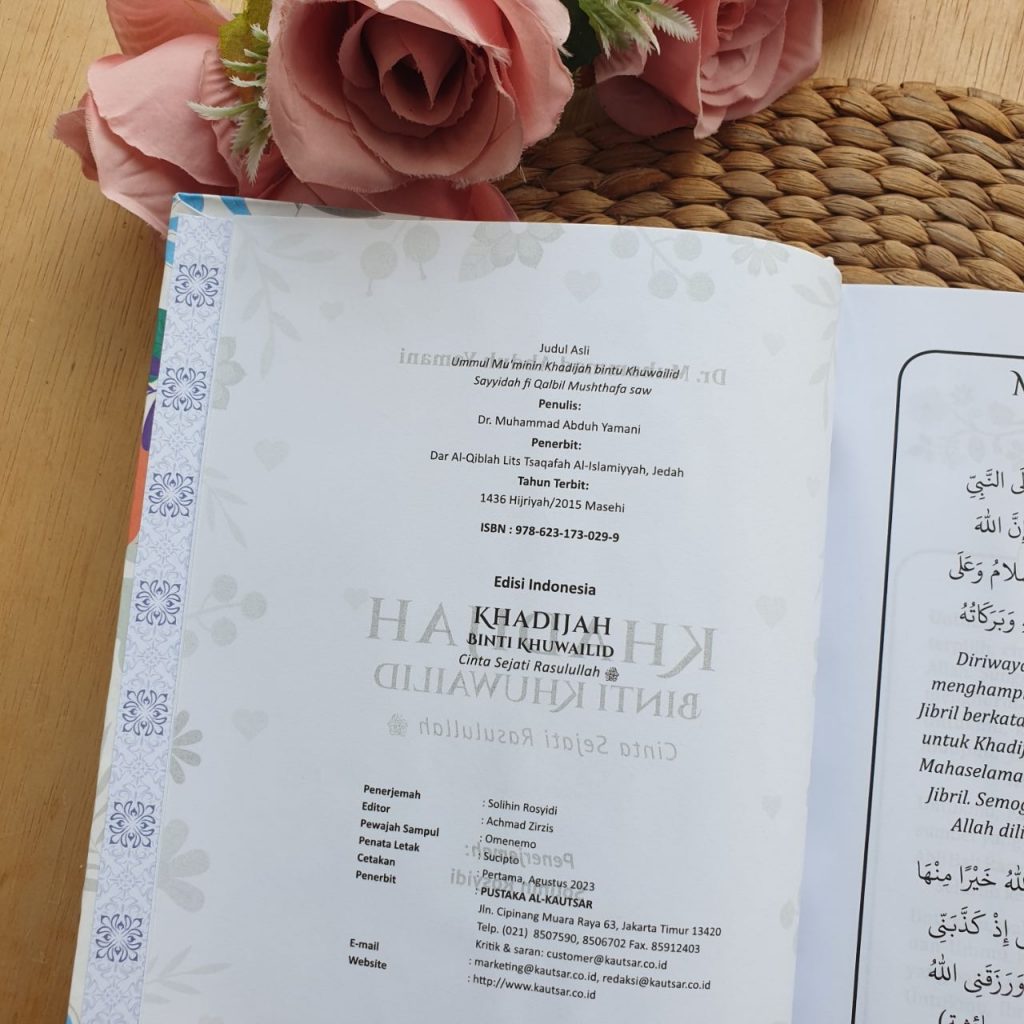 Judul Asli
Ummul Mu'minin Khadijah bintu Khuwailid
Sayyidah fi Qalbil Mushthafa saw
Penulis:
Dr. Muhammad Abduh Yamani
Penerbit:
Dar Al-Qiblah Lits Tsaqafah Al-Islamiyyah, Jedah
Tahun Terbit:
1436 Hijriyah/2015 Masehi
ISBN : 978-623-173-029-9
Edisi Indonesia
KHADIJAH
BINTI KHUWAILID
Cinta Sejati Rasulullah ﷺ
Penerjemah : Solihin Rosyidi
Editor : Achmad Zirzis
Pewajah Sampul : Omenemo
Penata Letak : Sucipto
Cetakan : Pertama, Agustus 2023
Penerbit : PUSTAKA AL-KAUTSAR
Jln. Cipinang Muara Raya 63, Jakarta Timur 13420
Telp. (021) 8507590, 8506702 Fax. 85912403
Kritik & saran: customer@kautsar.co.id
E-mail : marketing@kautsar.co.id, redaksi@kautsar.co.id
Website : http://www.kautsar.co.id
النَّبِيِّ
إِنَّ اللهَ
وَعَلَى
وَبَرَكَاتُهُ
Diriwaya
menghamp
Jibril berkata
untuk Khadij
Mahaselama
Jibril. Semog
Allah dili
اللهُ خَيْرًا مِنْهَا
إِذْ كَذَّبَنِي
وَرَزَقَنِي اللهُ